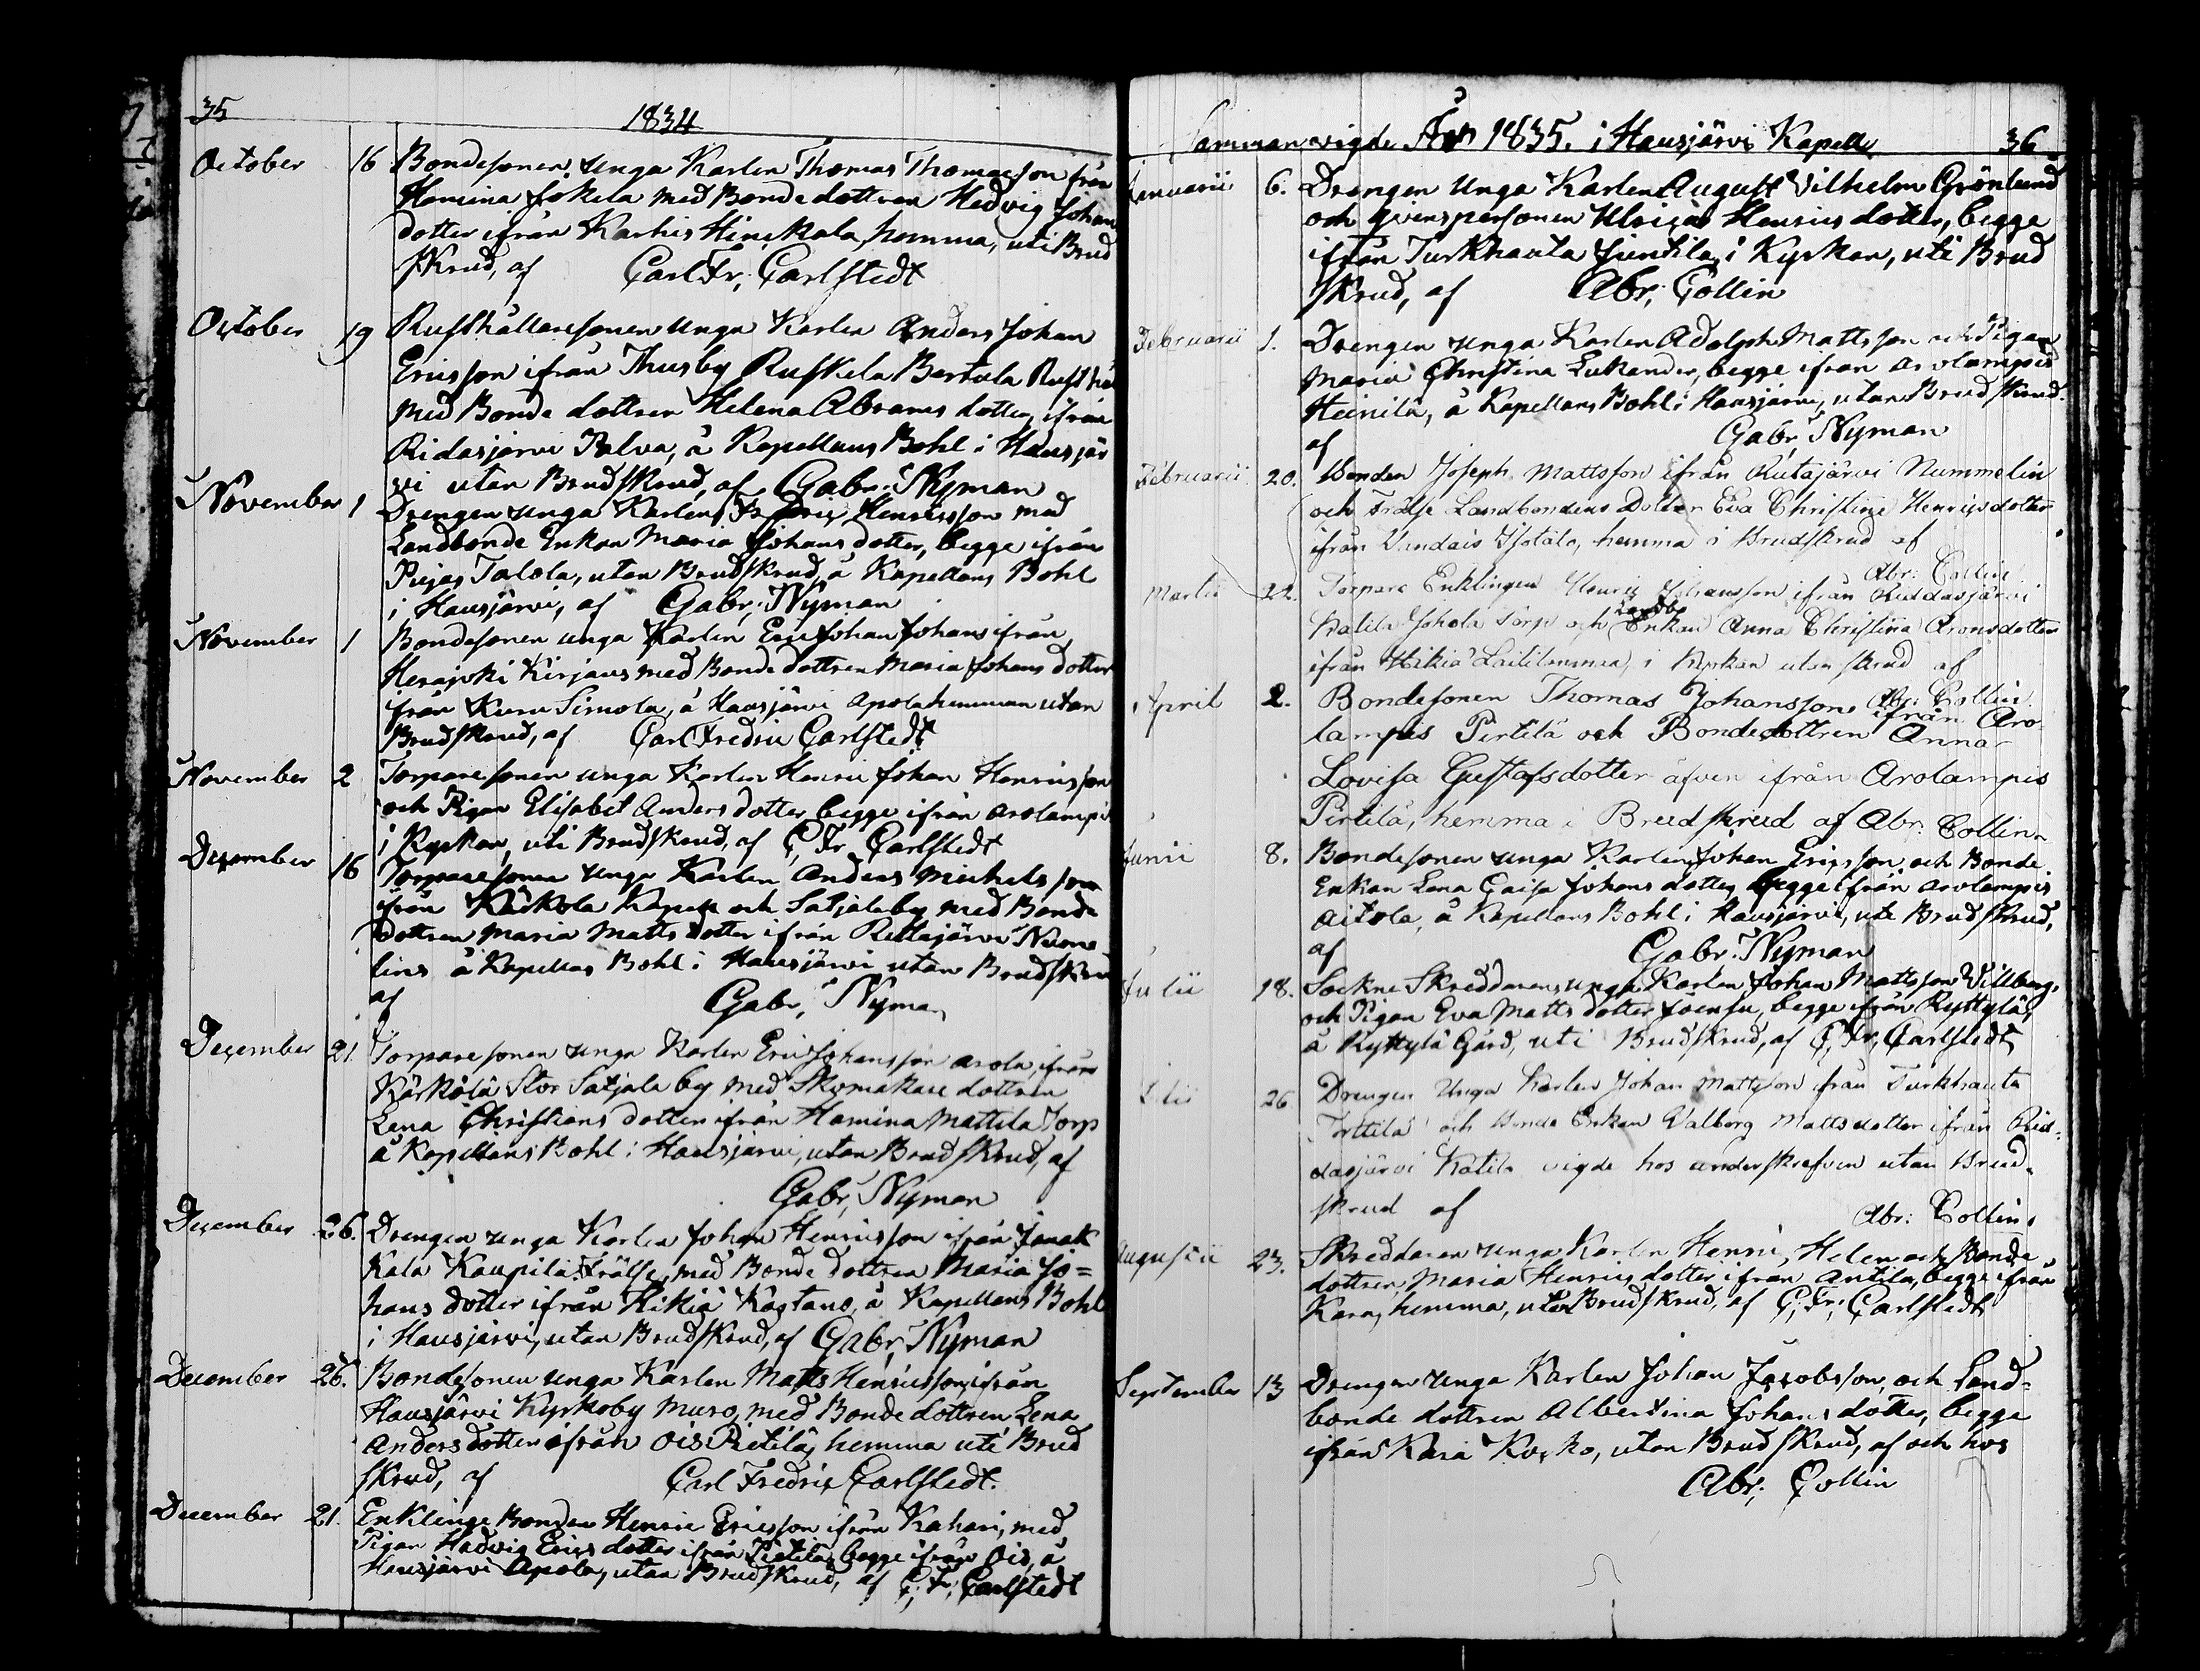 35
1834
October 16 Bondesonen, unga Karlen Thomas Thomasson från
Hamina Jokela med Bondedottren Hedvig Johans
dotter ifrån Karhis Hinckala, hemma, uti Brud
skrud, af Carl Fr, Carlstedt
October 19 Rusthållaresonen unga Karlen Anders Johan
Ericsson ifrån Thusby Ruskela Bertula Rusthåll
med Bonde dottren Helena Abrams dotter, ifrån
Ridasjärvi Palva, å Kapellans Bohl i Hausjär
vi utan Brudskrud, af Gabr. Nyman
November 1 Drengen unga Karlen, Fredric Henricsson med
Landbonde Enkan Maria Johans dotter, begge ifrån
Pujas Talola, utan Brudskrud, å Kapellans Bohl
i Hausjärvi, af Gabr, Nyman
November 1 Bondesonen unga Karlen Eric Johan Johans ifrån
Herajoki Kirjaus med Bonde dottren Maria Johans dotter
ifrån Kuru Simola, å Hausjärvi Apola hemman utan
Brudskrud, af Carl Fredric Carlstedt
November 2 Torparesonen unga Karlen Henric Johan Henricsson
och Pigan Elisabet Anders dotter begge ifrån Arolampi
i Kyrkan, uti Brudskrud, af C, Fr, Carlstedt
December 16 Torparesonen unga Karlen Anders Michelsson
ifrån Kärkola Kapell och Satjala by med Bonde
dottren Maria Matts dotter ifrån Rutajärvi Nume
lins å Kapellas Bohl i Hausjärvi utan Brudskrud
af Gabr, Nyman
December 21. Torparesonen unga Karlen Eric Johansson Arola, ifrån
Kärkölä Stor Satjala by med Skomakare dottren
Lena Christians dotter ifrån Hamina Mattila Torp
å Kapellans Bohl i Hausjärvi, utan Brudskrud, af
Gabr, Nyman
December 26. Drengen unga Karlen Johan Henricsson ifrån Janak
kala Kaupila Frälse, med Bonde dottren Maria Jo=
hans dotter ifrån Hikiä Kastans, å Kapellans Bohl
i Hausjärvi, utan Brudskrud, af Gabr, Nyman
December 26. Bondesonen unga Karlen Matts Henricsson, ifrån
Hausjärvi Kyrkoby Muro, med Bonde dottren Lena
Anders dotter ifrån Ois Pietilä, hemma uti Brud
skrud, af Carl Fredric Carlstedt.
December 21. Enklinge Bonden Henric Ericsson ifrån Kahari, med
Pigan Hedvig Erics dotter ifrån Pietilä, begge ifrån Ois, å
Hausjärvi Apola, utan Brudskrud, af C, F, Carlstedt
Sammanvigde År 1835. i Hausjärvi Kapelle 36
Januarii 6. Drengen unga Karlen August Vilhelm Grönlund
och qvinspersonen Ulrica Henrics dotter, begge
ifrån Turkhauta Juntila, i Kyrkan, uti Brud
skrud, af Abr, Collin
Februarii 1. Drengen unga Karlen Adolph Mattsson och Pigan
Maria Christina Lukander, begge ifrån Arolampis
Heinilä, å Kapellans Bohl i Hausjärvi, utan Brudskrud.
af Gabr, Nyman
Februarii 20. Bonden Joseph Mattsson ifrån Rutajärvi Nummelin
och Frälse Landbondens Dotter Eva Christina Henricsdotter
ifrån Vandais Isotalo, hemma i Brudskrud af
Abr: Collin
Martii 22. Torpare Enklingen Henric Johansson ifrån Riddasjärvi
Katila Johola Torp och Landb. Enkan Anna Christina Aronsdotter
ifrån Hikiä Laitilinmaa, i Kyrkan utan skrud af
Abr: Collin
April 2. Bondesonen Thomas Johansson ifrån Aro-
lampis Pertilä och Bondedottren Anna
Lovisa Gustafsdotter äfven ifrån Arolampis
Pertilä, hemma i Brudskrud af Abr: Collin
Junii 8. Bondesonen unga Karlen Johan Ericsson och Bonde
Enkan Lena Caisa Johans dotter begge ifrån Arolampis
Aitola, å Kapellans Bohl i Hausjärvi, uti Brudskrud,
af Gabr. Nyman
Julii 18. Sockne Skreddaren, unga Karlen Johan Mattsson Villberg,
och Pigan Eva Matts dotter, begge ifrån Ryttylä,
å Ryttylä Gård, uti Brudskrud, af C, Fr, Carlstedt
Julii 26 Drengen Unga Karlen Johan Mattsson ifrån Turkhauta
Torttila och Bonde Enkan Valborg Mattsdotter ifrån Rid-
dasjärvi Katila vigde hos underskrefven utan Brud-
skrud af Abr: Collin
Augustii 23. Skreddaren unga Karlen Henric, Helen och Bonde
dottren, Maria Henrics dotter ifrån Antila, begge ifrån
Kara, hemma, utan Brudskrud, af C, Fr, Carlstedt
September 13 Drengen unga Karlen Johan Jacobsson, och Land=
bonde dottren Albertina Johans dotter, begge
ifrån Kara Korko, utan Brudskrud, af och hos
Abr, Collin